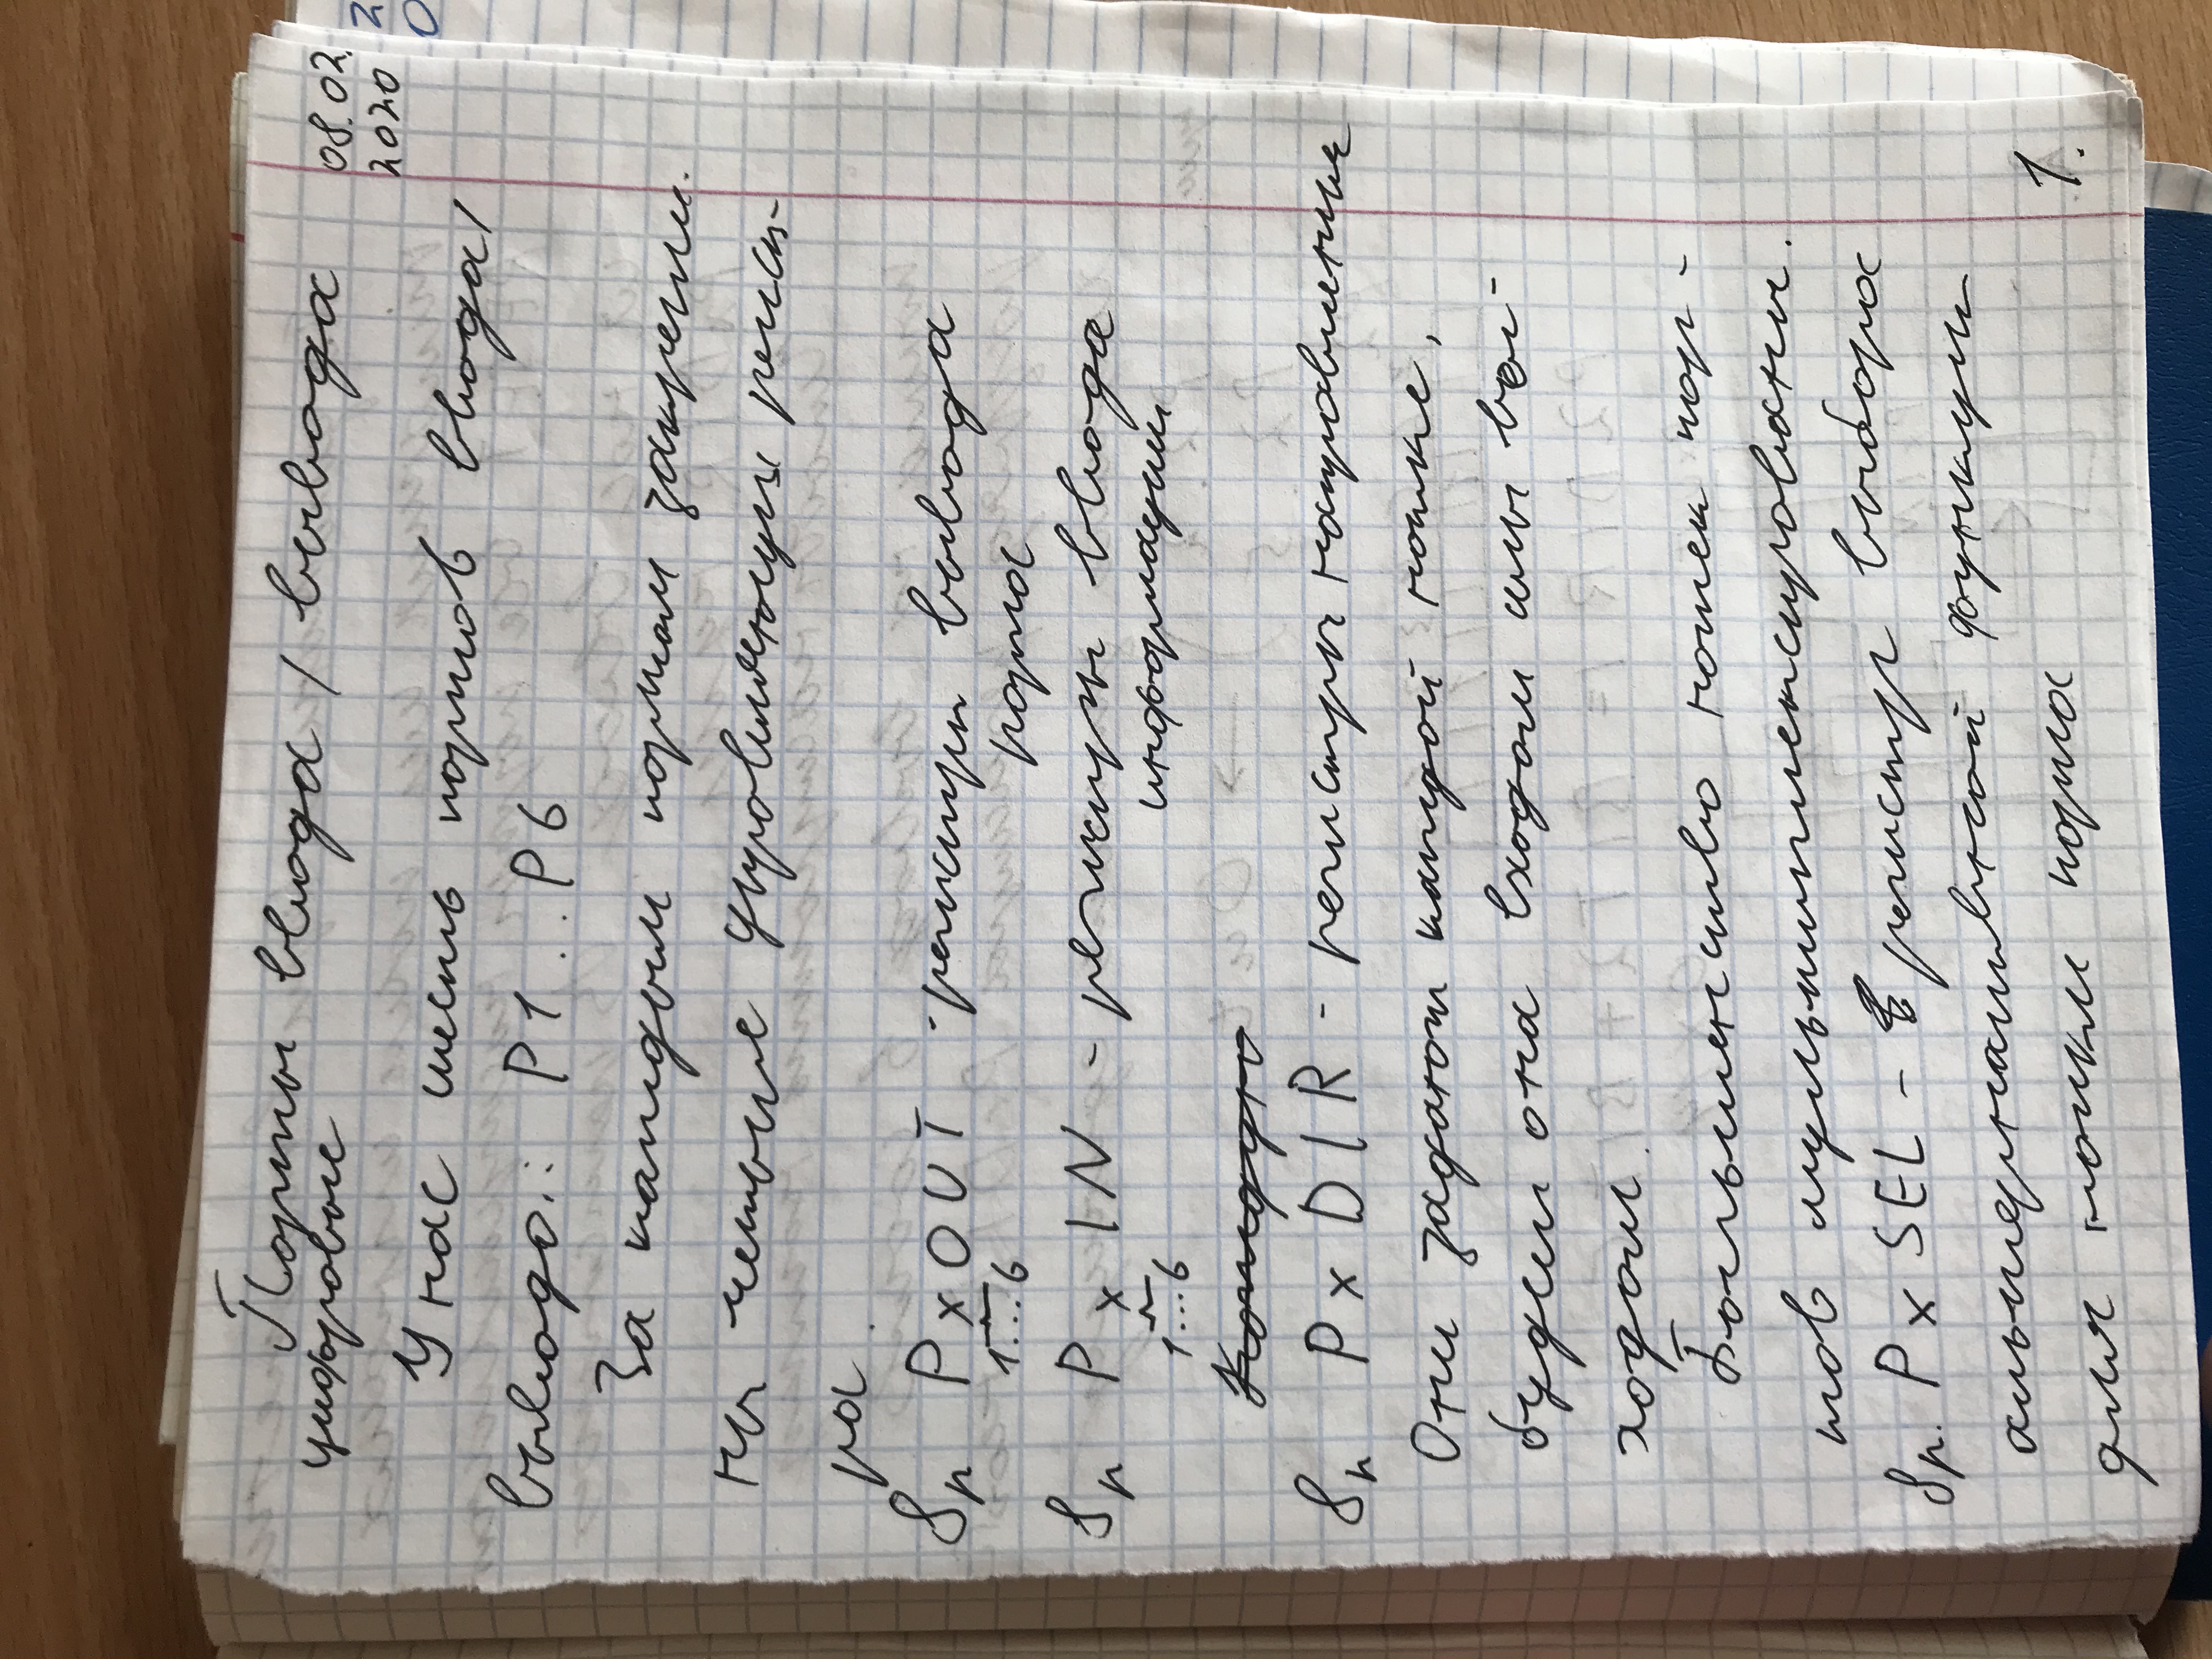 Порты ввода / вывода
цифровые
08.02.
2020
У нас шесть портов ввода/
вывода: P1...P6
За каждым портом закрепле-
ны четыре управляющих регист-
ра.
8р PxOUT - регистры вывода
1...6 порта
8р PxIN - регистры ввода
1...6 информации
Каждую
8р PxDIR - регистры направления
Они задают каждой ножке,
будет она входом или вы-
ходом.
Большинство ножек пор-
тов мультиплексированы.
8р. PxSEL - регистр выбора
альтернативной функции
для ножки порта
1.